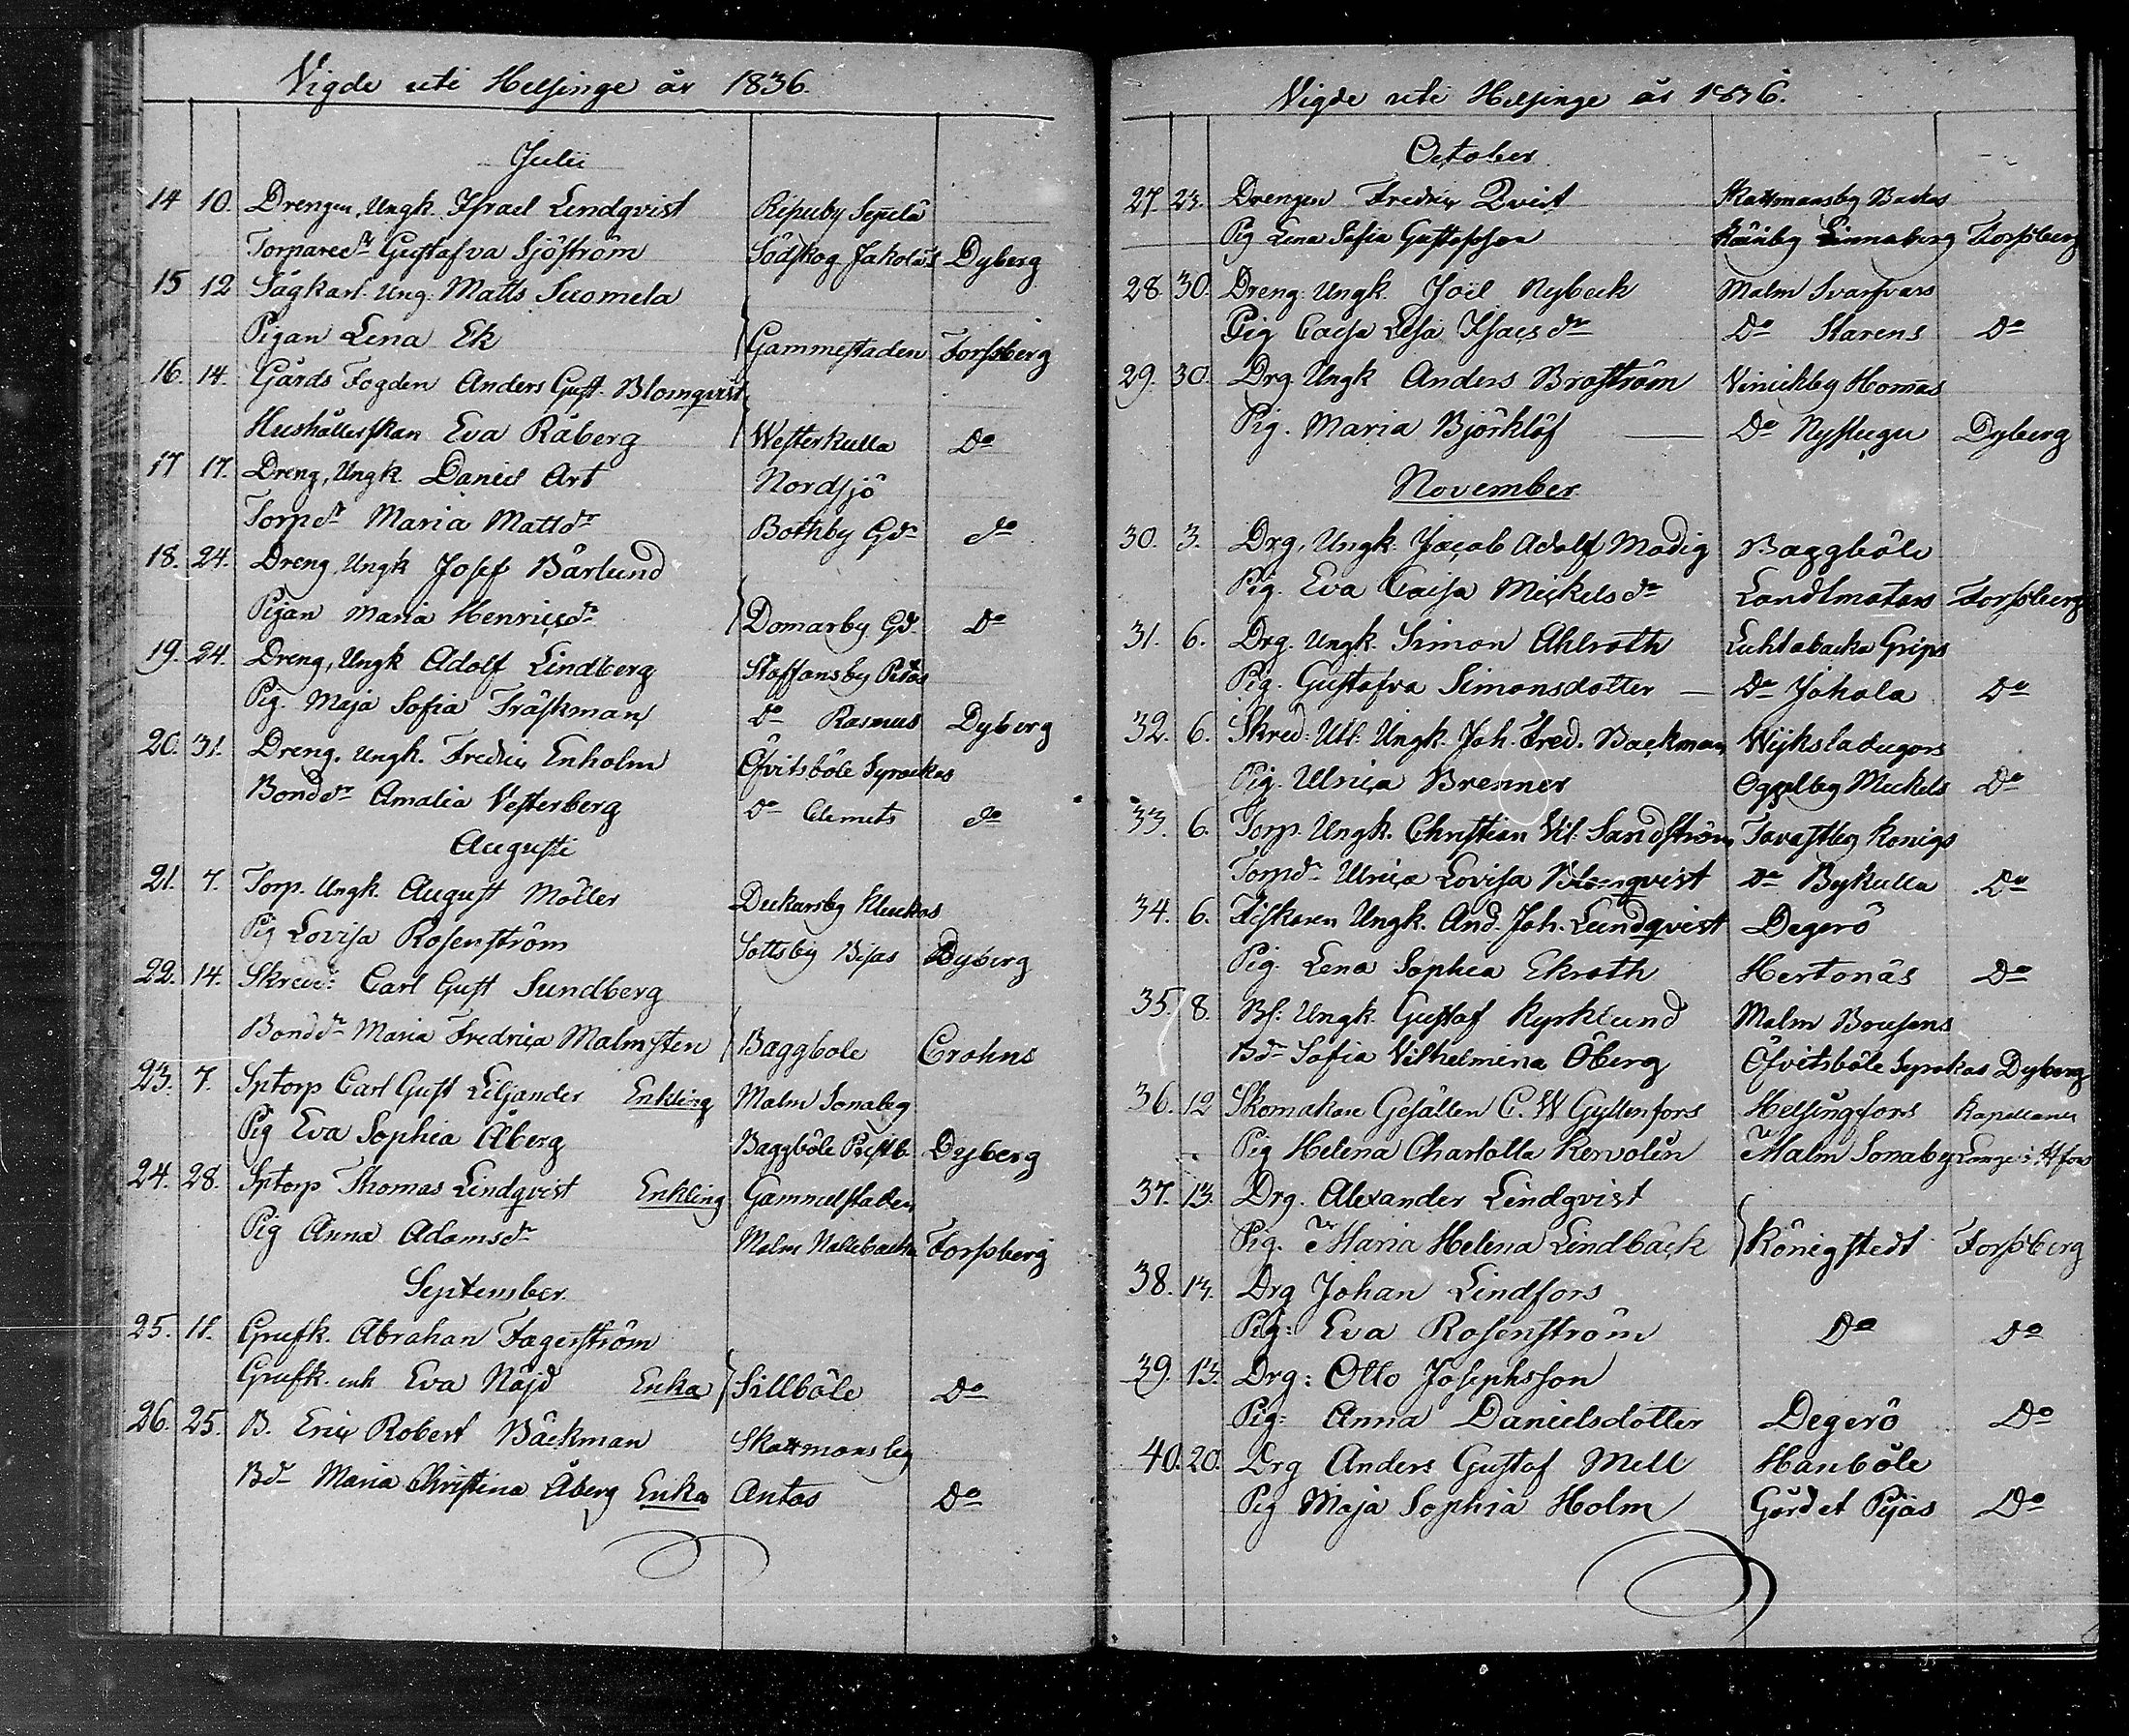 Vigde uti Helsinge år 1836.
Julii
14 10. Drengen, Ungk. Israel Lindqvist Ripuby Seppelä
Torpared:r Gustafva Sjöström Södskog Jakolas Dyberg
15 12 Sågkarl. Ung. Matts Suomela
Pigan Lena Ek Gammestaden Forssberg
16. 14. Gårds Fogden Anders Gust. Blomqvist
Hushållerskan Eva Råberg Westerkulla Do
17 17. Dreng, Ungk. Daniel Art Nordsjö
Torpdr Maria Mattsdr Bothby Gd do
18. 24. Dreng, Ungk Josef Bärlund
Pigan Maria Henricsdr Domarby Gd. Do
19. 24. Dreng, Ungk Adolf Lindberg Staffansby Petas
Pig. Maja Sofia Träskman Do Rasmus Dyberg
20. 31. Dreng. Ungk. Fredric Enholm Öfvitsböle Syrackas
Bonddr Amalia Vesterberg Do Clemets do
Augusti
21. 7. Torp. Ungk. August Möller Dickursby Kluckas
Pig Lovisa Rosenström Sottsby Bisas Dyberg
22. 14. Skredd: Carl Gust Sundberg
Bonddr Maria Fredrica Malmsten Baggbole Crohns
23. 7. Sptorp Carl Gust Liljander Enkling Malm Sonaby
Pig Eva Sophia Åberg Baggböle Postb. Dyberg
24. 28. Sptorp Thomas Lindqvist Enkling Gammelstaden
Pig Anna Adamsdr Malm Nallebacka Forssberg
September
25. 11. Grufk. Abraham Fagerström
Grufk. enk Eva Nöjd Enka Sillböle Do
26. 25. B. Eric Robert Bäckman Skattmansby
Bdr Maria Christina Åberg Enka Antas Do
Vigde uti Helsinge år 1836.
October
27. 23. Drengen Fredric Qvist Skattmansby Backas
Pig Lena Sofia Gustafsson Linnaberg Forssberg
28. 30. Dreng: Ungk. Joël Nybeck Malm Svarfvars
Pig Caisa Lisa Isacsdr Do Starens Do
29. 30. Drg. Ungk Anders Broström Vinickby Hommas
Pig. Maria Björklöf Do Nystugu Dyberg
November
30. 3. Drg. Ungk. Jacob Adolf Modig Baggböle
Pig. Eva Caisa Mickelsdr Landtmätars Forssberg
31. 6. Drg. Ungk. Simon Ahlroth Luhtabacka Grips
Pig. Gustafva Simonsdotter Do Johola Do
32. 6. Skred: Utl. Ungk. Joh. Fred. Backman Wiksladugårs
Pig. Ulrica Brenner Oggelby Mickels Do
33. 6. Torp. Ungk. Christian Vil. Sandström Tavastby Konigs
Torpdr Ulrica Lovisa Blomqvist Do Bykulla Do
34. 6. Fiskaren Ungk. And. Joh. Lundqvist Degerö
Pig. Lena Sophia Ekroth Hertonäs Do
35. 8. Bs: Ungk. Gustaf Kyrklund Malm Brusans
Bdr Sofia Vilhelmina Öberg Öfvitsböle Syrakas Dyberg
36. 12 Skomakare Gesällen C. W Gyllenfors Helsingfors Kapellanen
Pig Helena Charlotta Kervolin Malm Sonaby Lange i Hfors
37. 13. Drg. Alexander Lindqvist
Pig. Maria Helena Lindbäck Königstedt Forssberg
38. 13. Drg Johan Lindfors
Pig: Eva Rosenström Do Do
39. 13. Drg: Otto Josephsson
Pig: Anna Danielsdotter Degerö Do
40. 20. Drg Anders Gustaf Mell Hanböle
Pig Maja Sophia Holm Gärdet Pijas Do